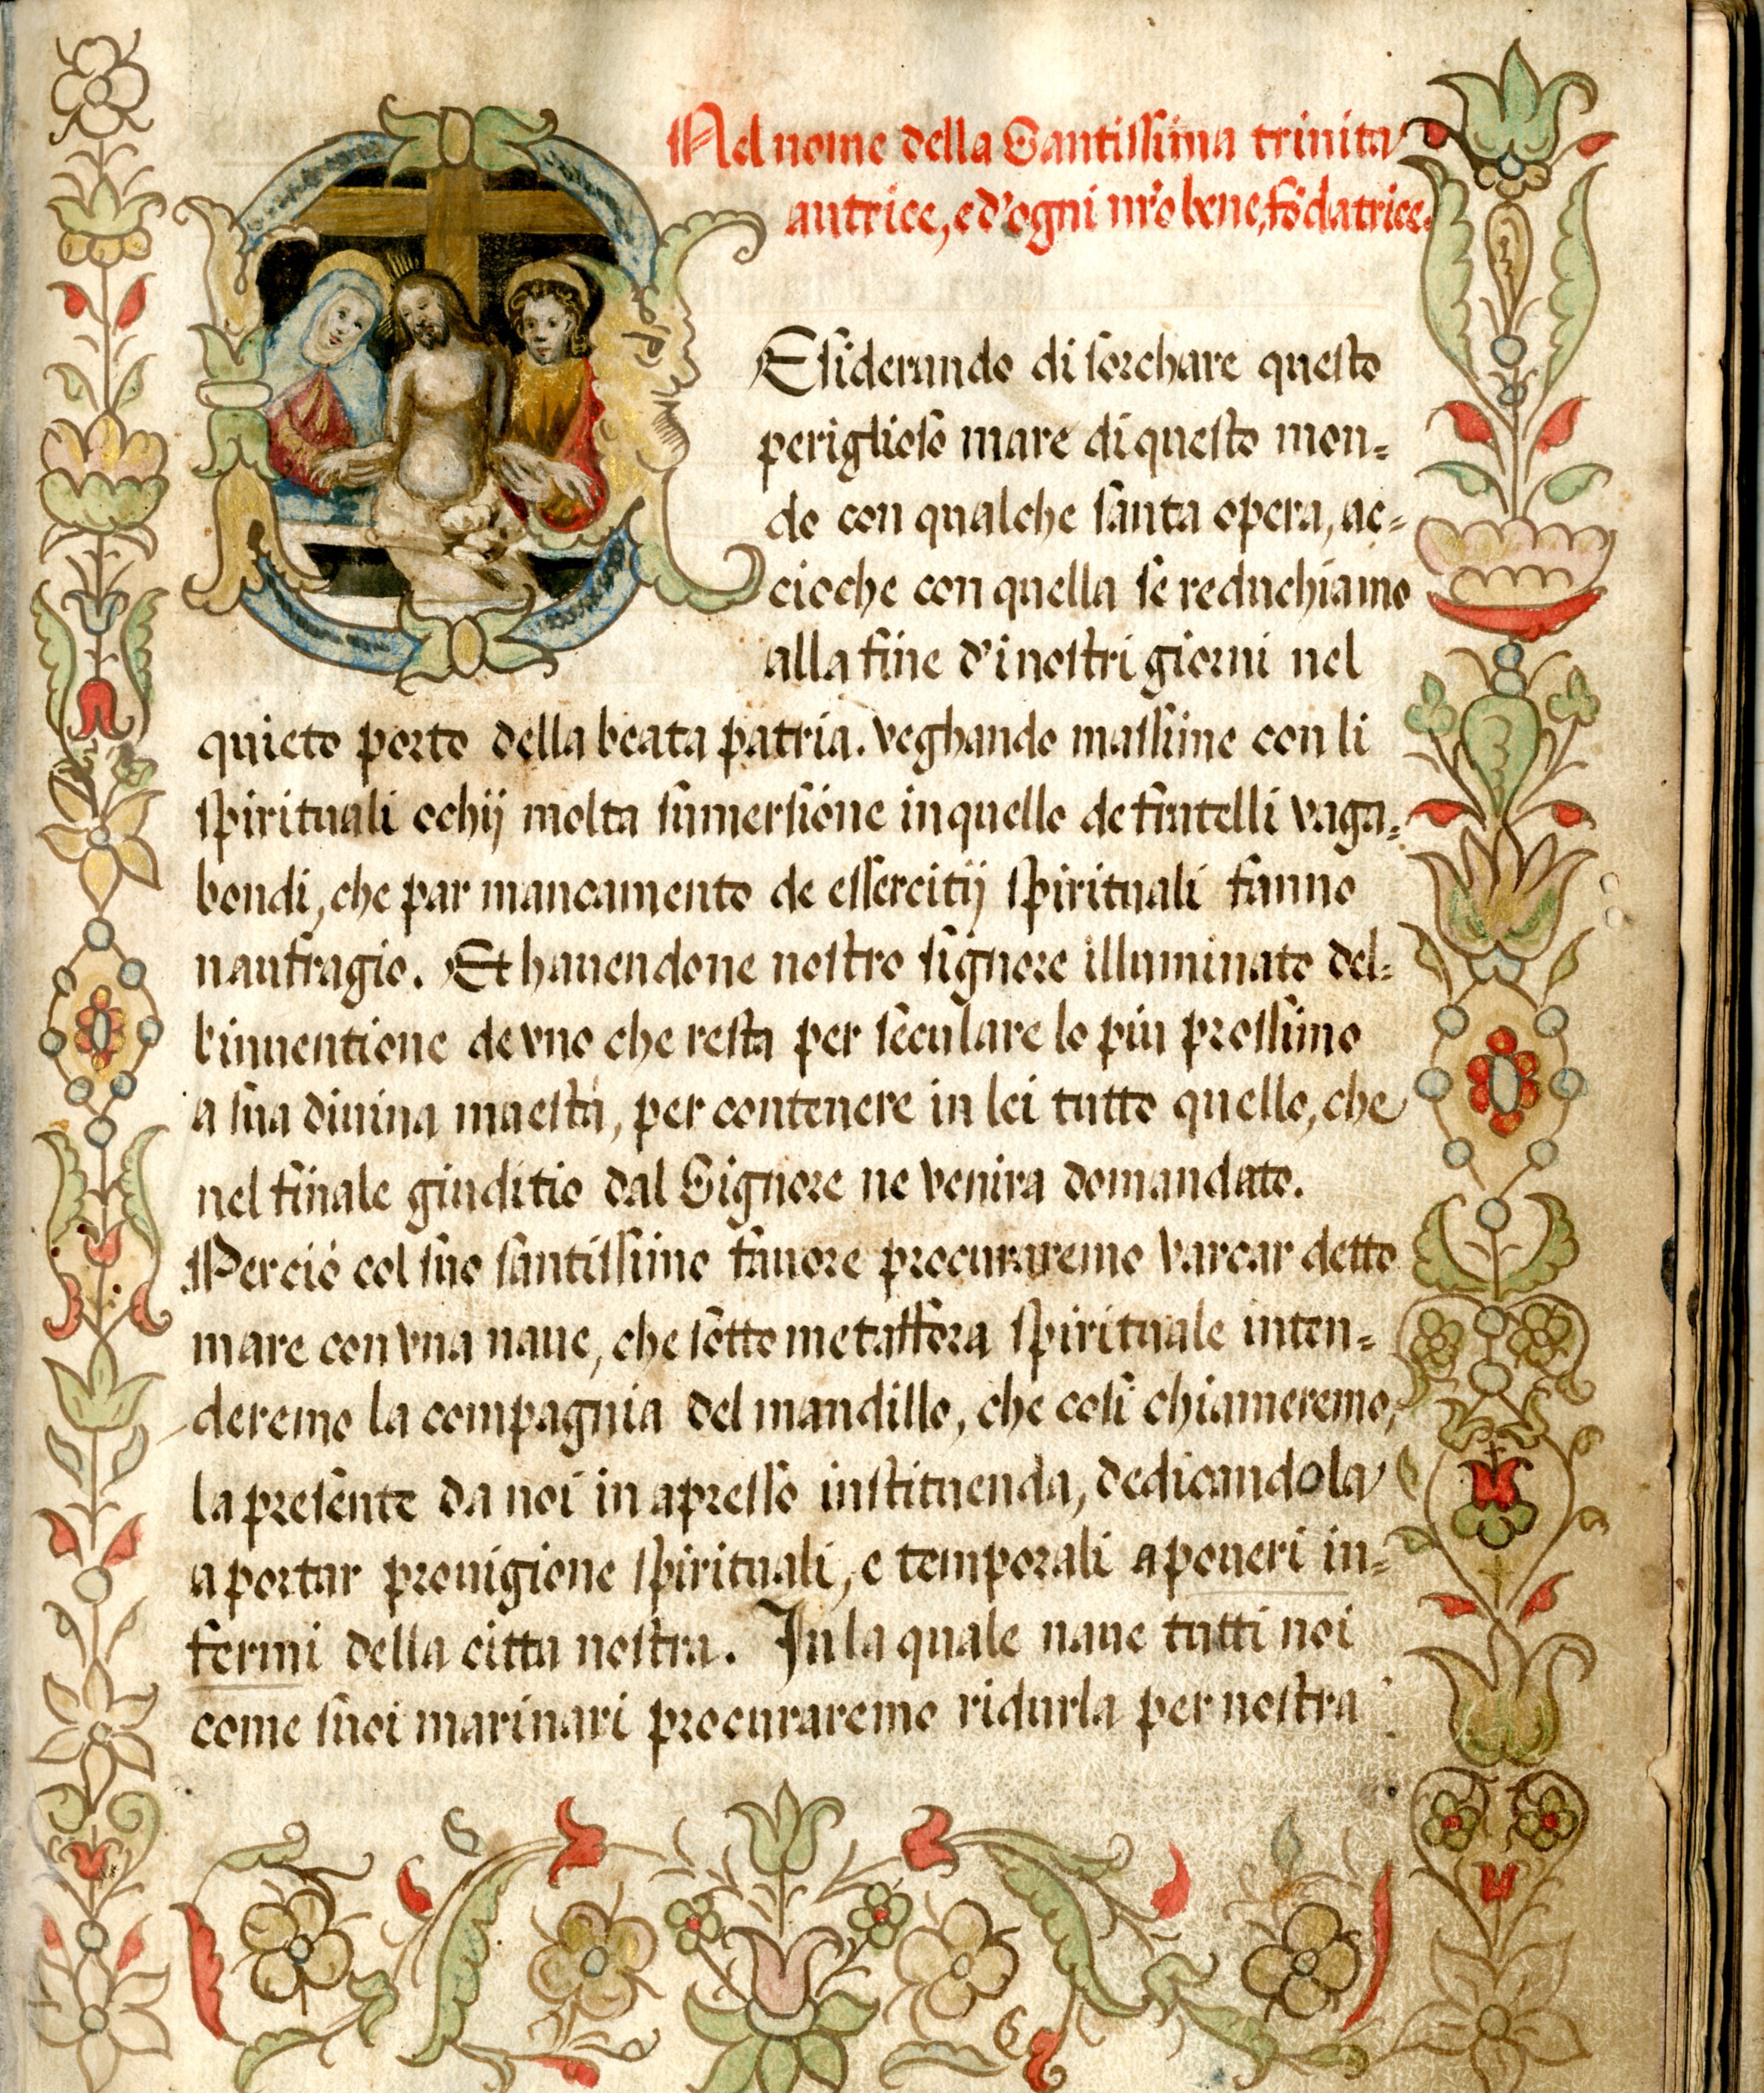 Nel nome della Santissima trinita
autrice, e d'ogni nr̃o bene, fõdatrice.
Esiderando di sorchare questo
periglioso mare di questo mon=
do con qualche santa opera, ac=
cioche con quella se reduchiamo
alla fine d'i nostri giorni nel
quieto porto della beata patria. veghando massime con li
spirituali ochij molta sumersióne in quello de fratelli vaga=
bondi, che par mancamento de essercitij spirituali fanno
naufragio. Et hauendone nostro signore illuminato del=
l'inuentione de vno che resta per seculare lo piu prossimo
a sua diuina maestà, per contenere in lei tutto quello, che
nel finale giuditio dal Signore ne venira domandato.
Perciò col suo santissimo fauore procuraremo varcar detto
mare con vna naue, che sotto metaffora spirituale inten=
deremo la compagnia del mandillo, che così chiameremo,
la presente da noi in apresso instituenda, dedicandola
a portar prouigione spirituali, e temporali a poueri in=
fermi della citta nostra. In la quale naue tutti noi
come suoi marinari procuraremo ridurla per nostra